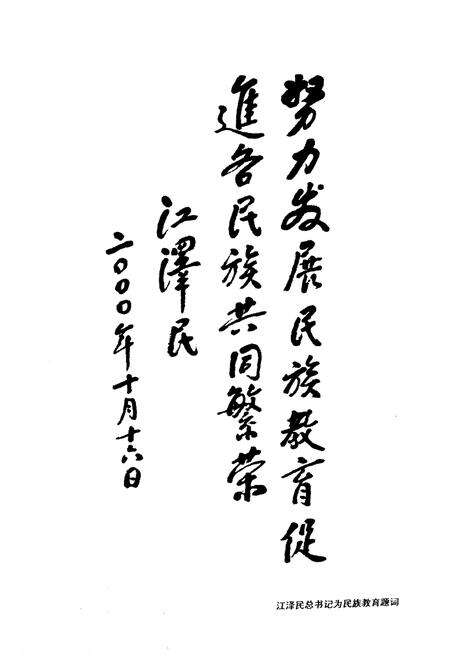 努力发展民族教育促
進各民族共同繁荣
江澤民
二〇〇〇年十月十六日
江泽民总书记为民族教育题词